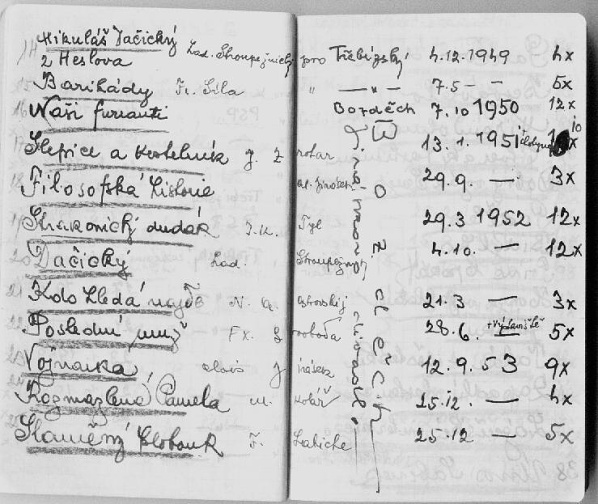 Mikuláš Dačický Lad. Stroupežnický pro Třebízský 4.12.1949 4x
z Heslova
Barikády Fr. Síla " — " — 7.5 — — 5x
Naši furianti Bozděch 7.10 1950 12x
Slepice a kostelník J. Z rotar 13.1.1951 10
Filosofská historie al. jirásek 29.9. — 3x
Strakonický dudák J.K. Tyl 29.3 1952 12x
Dačický Lad. Stroupežnický 4.10. — 12x
Kdo hledá najde N. A. ostrovskij 21.3 — 3x
Poslední muž Fx. S voboda 28.6. — 5x
Vojnarka alois J irásek 12.9.53 9x
Rozmazlená Pamela M. kolář 25.12. — 4x
Slaměný klobouk F. Labiche 25.12 — 5x